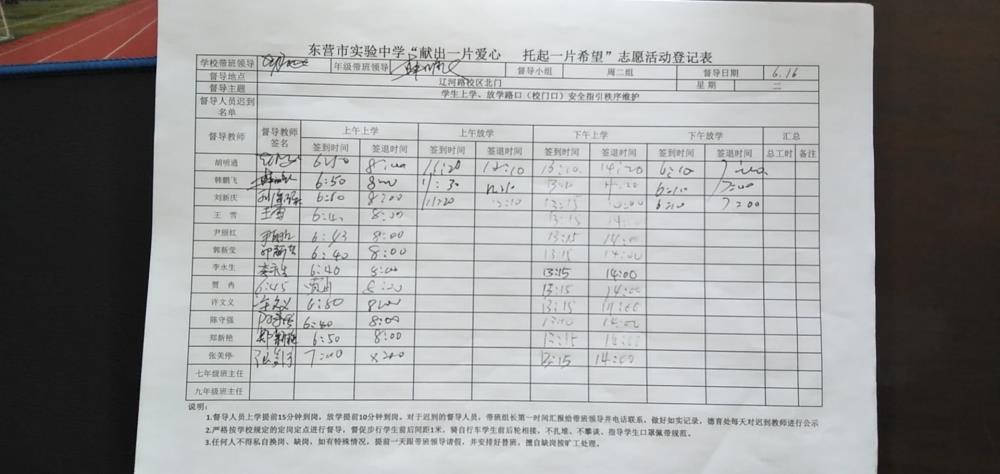 东营市实验中学“献出一片爱心 托起一片希望”志愿活动登记表
学校带班领导 年级带班领导 督导小组 周二组 督导日期 6.16
督导地点 辽河路校区北门 星期 二
督导主题 学生上学、放学路口（校门口）安全指引秩序维护
督导人员迟到名单
督导教师 督导教师签名 上午上学 上午放学 下午上学 下午放学 汇总
签到时间 签退时间 签到时间 签退时间 签到时间 签退时间 签到时间 签退时间 总工时 备注
胡明通 6:50 8:00 11:20 12:10 13:10 14:20 6:10 7:00
韩鹏飞 6:50 8:00 11:30 12:10 13:10 14:20 6:10 7:00
刘新庆 6:50 8:00 11:20 12:10 13:15 6:10 7:00
王雪 王雪 6:40 8:00 13:15 14:00
尹丽红 6:43 8:00 13:15 14:00
郭新莹 6:40 8:00 13:15 14:00
李永生 李永生 6:40 8:00 13:15 14:00
贾冉 6:45 贾冉 8:00 13:15 14:00
许文义 许文义 6:50 8:00 13:15 14:00
陈守强 陈守强 6:40 8:00 14:00
郑新艳 郑新艳 6:50 8:00 13:15 14:00
张美停 7:00 8:00 13:15 14:00
七年级班主任
九年级班主任
说明：
1.督导人员上学提前15分钟到岗，放学提前10分钟到岗。对于迟到的督导人员，带班组长第一时间汇报给带班领导并电话联系，做好如实记录，德育处每天对迟到教师进行公示
2.严格按学校规定的定岗定点进行督导，督促步行学生前后间距1米，骑自行车学生前后轮相接，不扎堆、不攀谈、指导学生口罩佩带规范。
3.任何人不得私自换岗、缺岗，如有特殊情况，提前一天跟带班领导请假，并安排好替班，擅自缺岗按旷工处理。